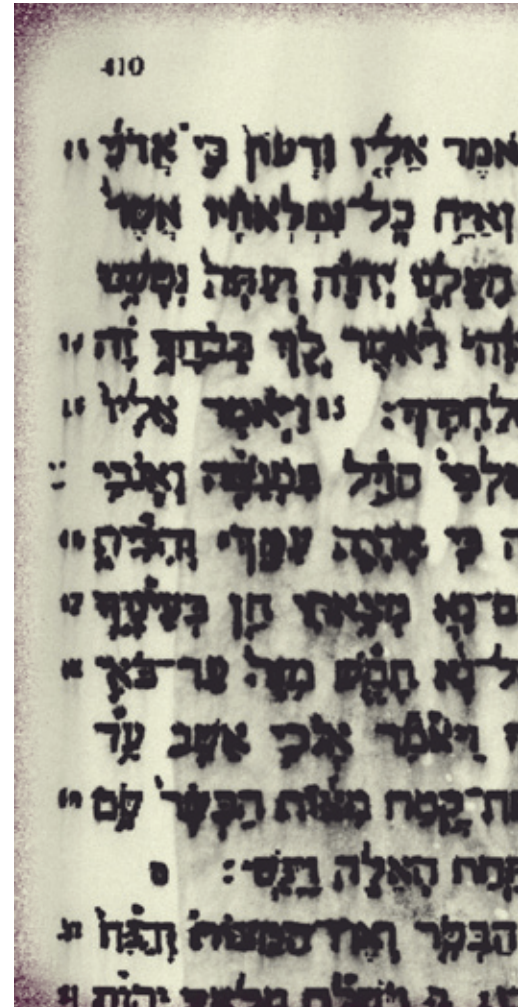 410
אמֶר אֵלָיו גִּדְעוֹן בִּי אֲדֹנִי
וְאַיֵּה כָל־נִפְלְאֹתָיו אֲשֶׁר
הֶעֱלָנוּ יְהוָה וְעַתָּה נְטָשָׁנוּ
וַיֹּאמֶר לֵךְ בְּכֹחֲךָ זֶה
15 וַיֹּאמֶר אֵלָיו
הַדַּל בִּמְנַשֶּׁה וְאָנֹכִי
כִּי אֶהְיֶה עִמָּךְ וְהִכִּיתָ
נָא מָצָאתִי חֵן בְּעֵינֶיךָ 17
נָא תָמֻשׁ מִזֶּה עַד־בֹּאִי
וַיֹּאמַר אָנֹכִי אֵשֵׁב עַד
קֶמַח מַצּוֹת הַבָּשָׂר שָׂם
תַּחַת הָאֵלָה וַיַּגַּשׁ׃ ס
הַבָּשָׂר וְאֶת־הַמַּצּוֹת וְהַנַּח
וַיִּשְׁלַח מַלְאַךְ יְהוָה